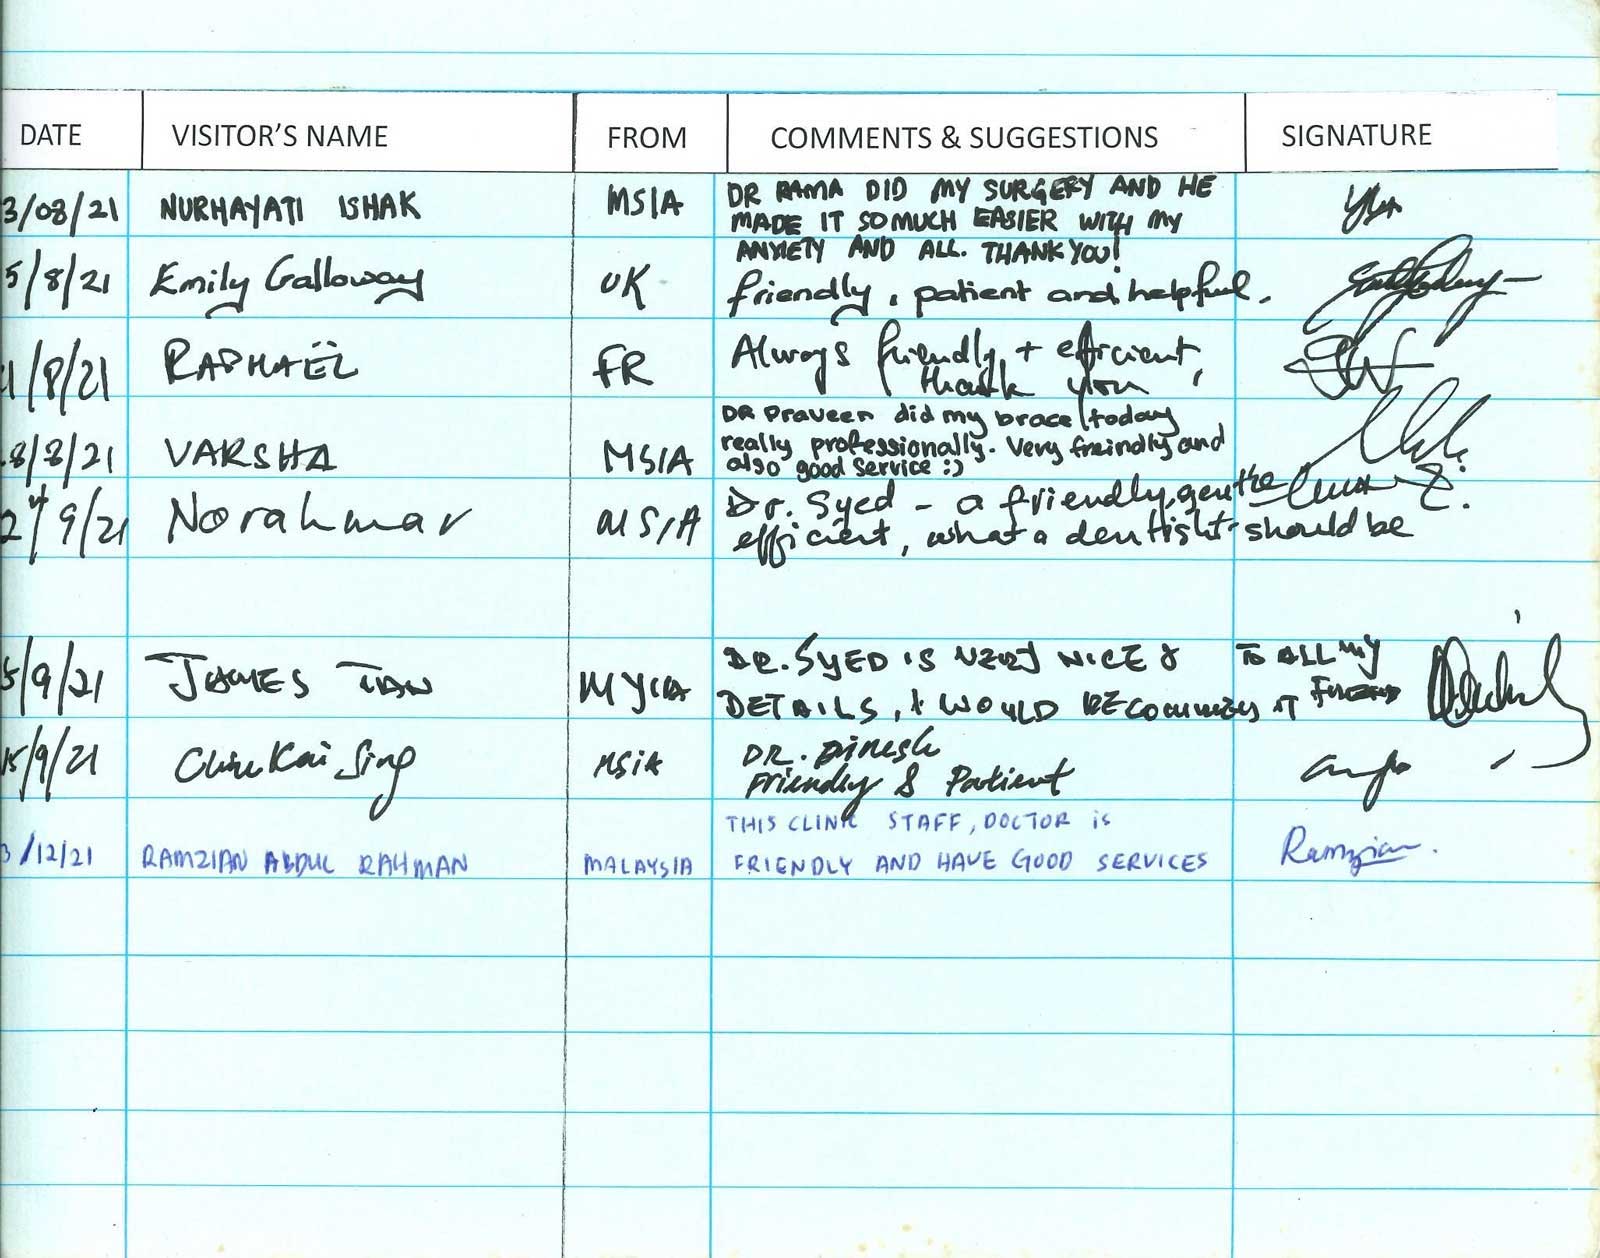 DATE VISITOR'S NAME FROM COMMENTS & SUGGESTIONS SIGNATURE
3/08/21 NURHAYATI ISHAK MSIA DR RAMA DID MY SURGERY AND HE
MADE IT SO MUCH EASIER WITH MY
ANXIETY AND ALL. THANK YOU!
5/8/21 Emily Galloway UK friendly, patient and helpful.
1/8/21 RAPHAËL FR Always friendly + efficient,
thank you
8/8/21 VARSHA MSIA DR Praveen did my brace today
really professionally. Very freindly and
also good service :)
24/9/21 Norahmar MSIA Dr. Syed - a friendly, gentle
efficient, what a dentist should be
5/9/21 JAMES TAN MYSIA DR. SYED IS VERY NICE & TO ALL MY
DETAILS, I WOULD RECOMMEND IT FRIEND
15/9/21 Chiu Kai Sing MSIA DR. Dinesh
Friendly & Patient
THIS CLINIC STAFF, DOCTOR IS
3/12/21 RAMZIAN ABDUL RAHMAN MALAYSIA FRIENDLY AND HAVE GOOD SERVICES Ramzian.